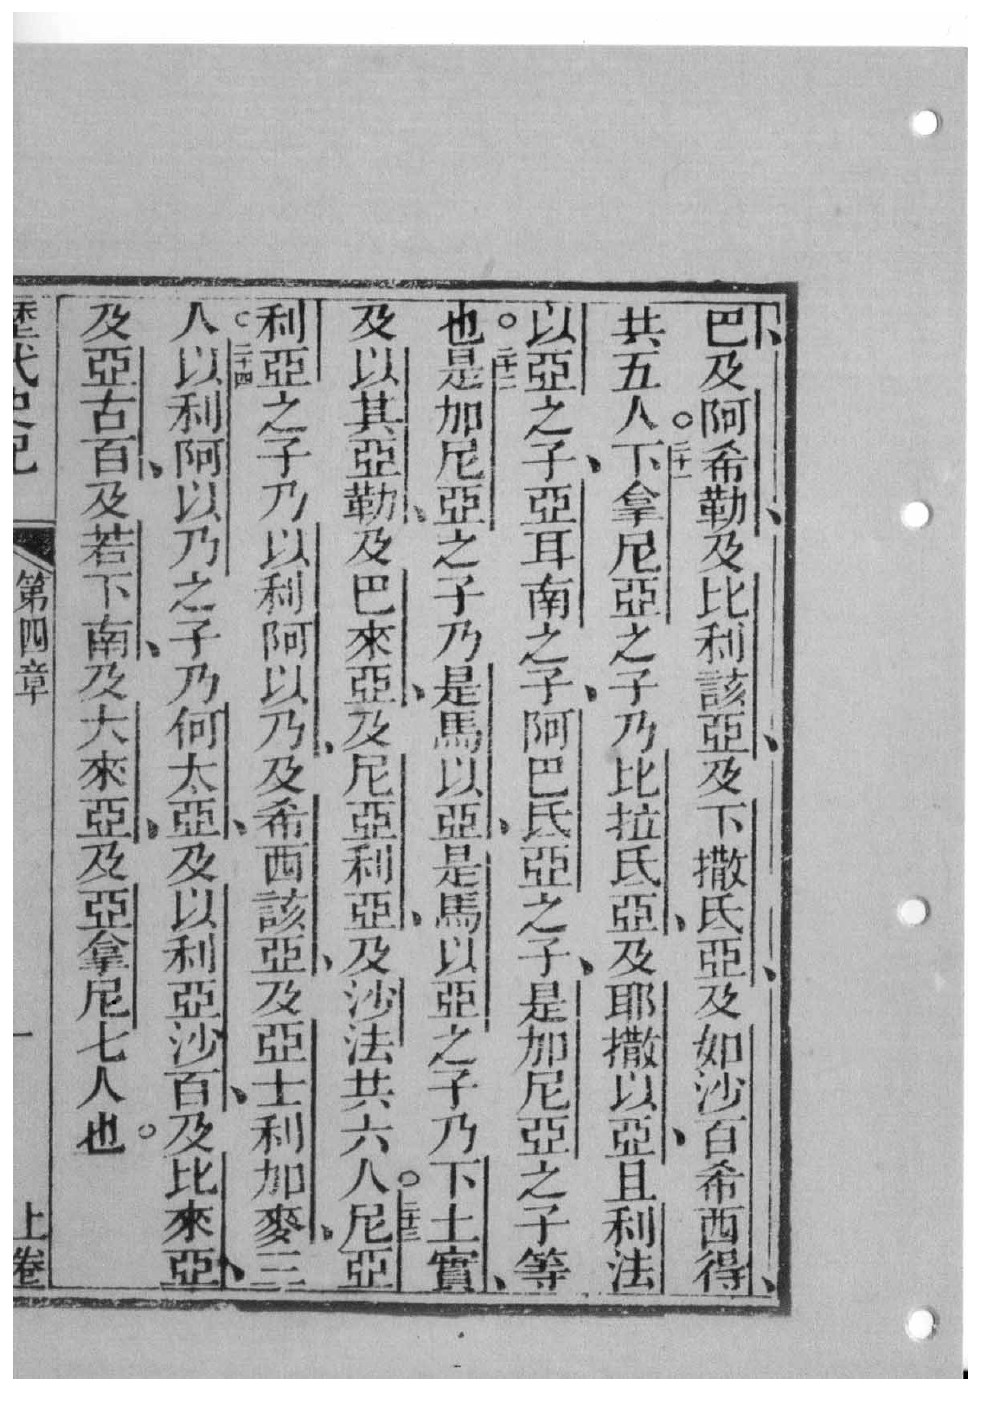 巴及阿希勒及比利該亞及下撒氏亞及如沙百希西得
共五人。二十一下拿尼亞之子乃比拉氏亞及耶撒以亞且利法
以亞之子亞耳南之子阿巴氏亞之子是加尼亞之子等
也。二十二是加尼亞之子乃是馬以亞是馬以亞之子乃下土實
及以其亞勒及巴來亞及尼亞利亞及沙法共六人。二十三尼亞
利亞之子乃以利阿以乃及希西該亞及亞士利加麥三
人。二十四以利阿以乃之子乃何太亞及以利亞沙百及比來亞
及亞古百及若下南及大來亞及亞拿尼七人也。
歷代史記 第四章 一 上卷